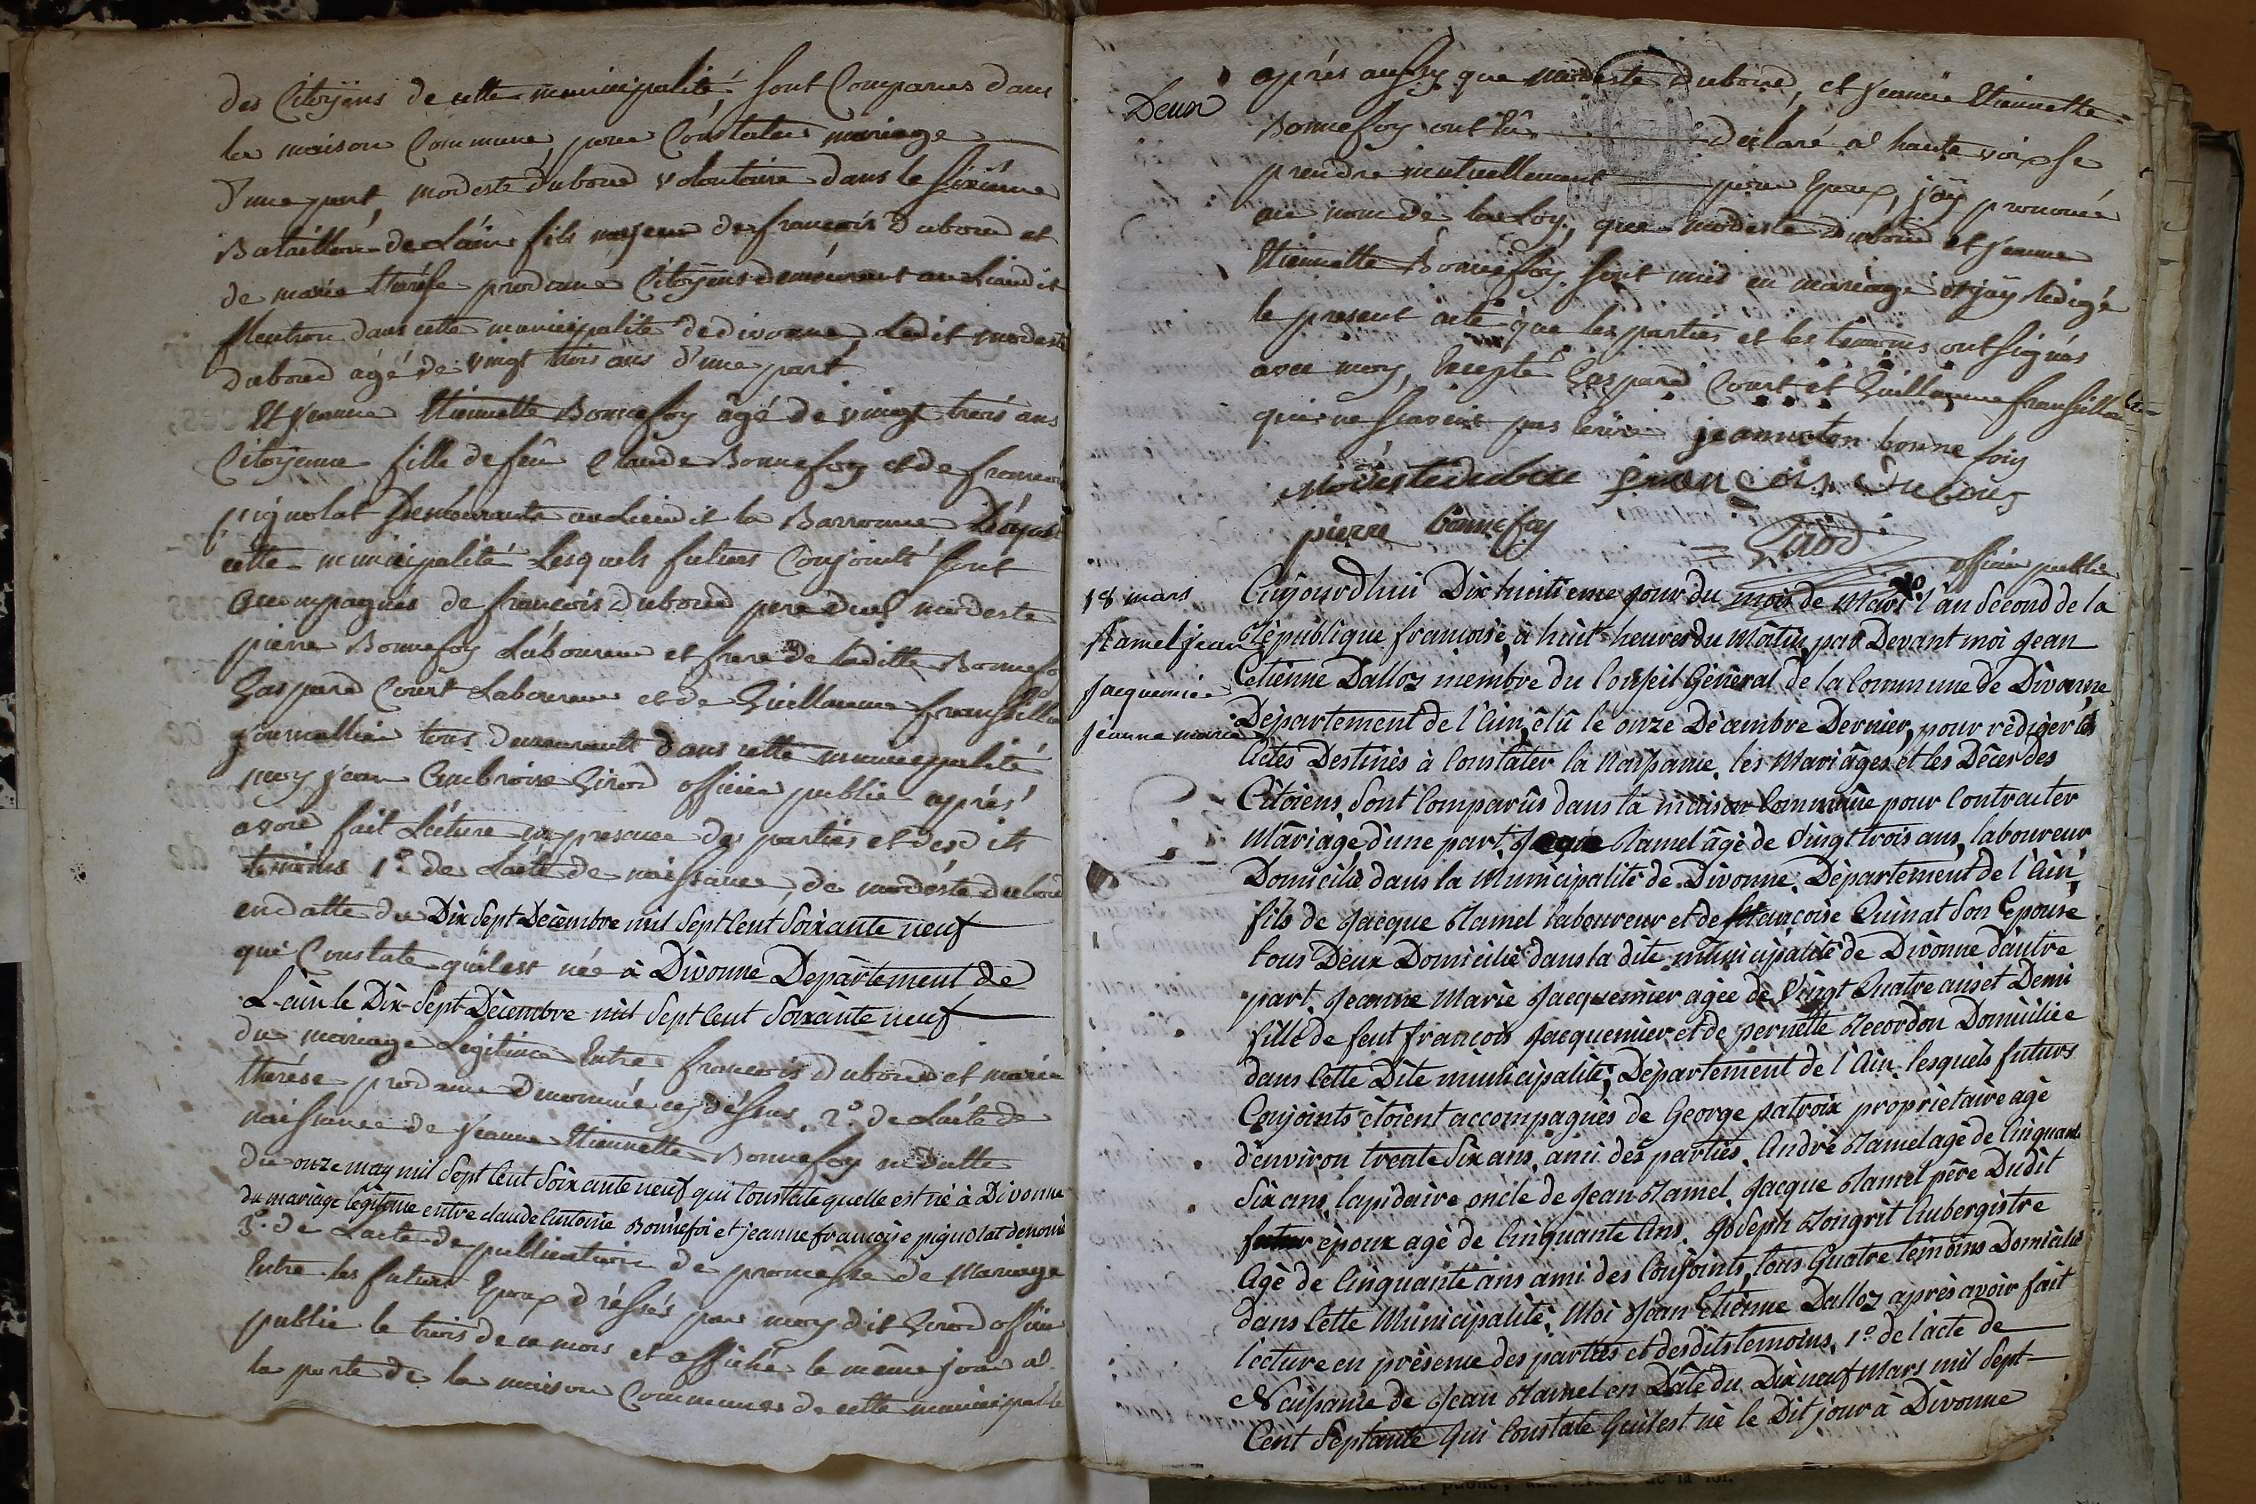 des Citoÿens de cette municipalité, sont Comparus dans
la maison Commune, pour Constater mariage
d'une part modeste duboud volontaire dans le sixième
Bataillon de Lain fils majeur de francois duboud et
de marie thérése prodame Citoÿens demeurant au Lieudit
dans cette municipalité de divonne, Ledit modeste
duboud agé de vingt trois ans d'une part
Et jeanne Etiennette Bonnefoy âgé de vingt trois ans
Citoÿenne fille de feu Claude Bonnefoy et de francoise
pignolat demeurante au Lieu dit la Barronne
cette municipalité Lesquels futurs Conjoints sont
accompagnés de francois duboud pere dud modeste
pierre Bonnefoy Laboureur et frere de laditte Bonnefo
Gaspard Court Laboureur et de Guillaume fransillon
journallier tous demeurants dans cette municipalité
moy jean Ambroise Girod officier public aprés
avoir fait Lécture en presence des parties et desdits
temoins 1.° de Lacte de naissance, de modéste duboud
en datte du Dix Sept Décembre mil Sept Cent Soixante neuf
qui Constate qu'il est née à Divonne Departement de
L'ain le Dix-Sept Décembre mil Sept Cent Soixante neuf
du mariage Légitime Entre francois duboud et marie
thérése prodame dénommé cy déssus. 2.° de Lacte de
naissance de jéanne Etiennette Bonnefoy en datte
du onze may mil Sept Cent Soixante neuf qui Constate quelle est né à Divonne
du mariage légitime entre claude Antoine Bonnefoi et jeanne francoise pignolat denomé
3.° de Lacte de publication de promesse de Mariage
Entre les futurs Epoux dréssés par moy dit Girod officier
public le trois de ce mois et affiché le même jour a
la porte de la maison Commune de cette municipalité
Deux
aprés aussy que modeste duboud, et jeanne Etiennette
Bonnefoy ont declaré a haute voix se
prendre mutuellement pour Epoux, j'aÿ prononcé
au nom de la Loy, que modeste duboud et jeanne
Etiennette Bonnefoy sont unis en mariage et jaÿ rédigé
le present acte que les parties et les temoins ont signés
avec moy, Excepté Gaspard Court et Guillaume fransillon
qui ne scavent pas Ecrire jeanneton bonne foiy
Modeste duboue francois Duboud
pierre bonnefoy
Girod officier public
18 mars
hamel jean
Jacquemier
jeanne marie
Aujourdhui Dix huitieme jour du mois de Mars l'an Second de la
République francoise, à huit heures du Matin, par Devant moi Jean
Etienne Dalloz membre du Conseil Général de la Commune de Divonne
Département de l'Ain, élû le onze Décembre Dernier, pour rédiger les
Actes Destinés à Constater la Naissance, les Mariâges et les Décès des
Citoiens, Sont Comparûs dans la maison Commune pour Contracter
Mâriage d'une part hamel âgé de Vingt trois ans, laboureur,
Domicilié dans la Municipalité de Divonne, Département de l'Ain,
fils de Jacque hamel laboureur et de françoise Quinat Son Epouse
tous Deux Domicilié dans la dite Municipalité de Divonne d'autre
part, Jeanne Marie Jacquemier agée de Vingt Quatre ans et Demi
fille de feut françois Jacquemier et de pernette Recordon Domiciliée
dans Cette Dite municipalité, Département de l'Ain, lesquels futurs
Conjoints étoient accompagnés de George patroix propriétaire agé
d'environ trente Six ans, ami des parties, André hamel agé de Cinquante
Six ans, lapidaire oncle de Jean hamel, Jacque hamel père Dudit
futur époux agé de Cinquante Ans, Joseph Aubergistre
Agé de Cinquante ans ami des Conjoints, tous Quatre témoins Domicilié
dans Cette Municipalité, Moi Jean Etienne Dalloz après avoir fait
lecture en présence des parties et desdits temoins, 1.° de l'acte de
Naissance de Jean hamel en Date du Dix neuf Mars mil Sept
Cent Septante Qui Constate Quil est né le Dit jour à Divonne